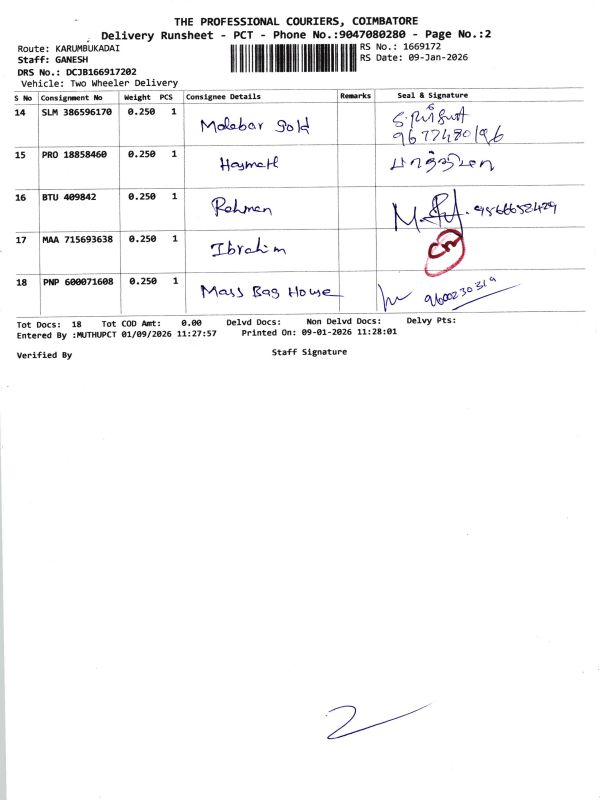 THE PROFESSIONAL COURIERS, COIMBATORE
Delivery Runsheet - PCT - Phone No.:9047080280 - Page No.:2
Route: KARUMBUKADAI
RS No.: 1669172
Staff: GANESH
RS Date: 09-Jan-2026
DRS No.: DCJB166917202
Vehicle: Two Wheeler Delivery
S No Consignment No Weight PCS Consignee Details Remarks Seal & Signature
14 SLM 386596170 0.250 1 Malabar Gold
9677480196
15 PRO 18858460 0.250 1
16 BTU 409842 0.250 1 Rehman 9566652429
17 MAA 715693638 0.250 1 Ibrahim
18 PNP 600071608 0.250 1 Mass Bag House 9600230319
Tot Docs: 18 Tot COD Amt: 0.00 Delvd Docs: Non Delvd Docs: Delvy Pts:
Entered By :MUTHUPCT 01/09/2026 11:27:57 Printed On: 09-01-2026 11:28:01
Verified By Staff Signature
2